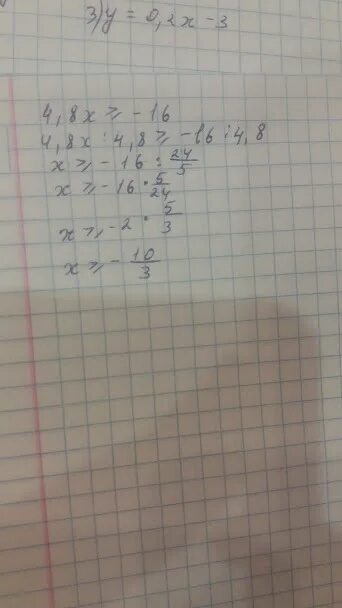 3) y = 0,2x - 3
4,8x ⩾ -16
4,8x : 4,8 ⩾ -16 : 4,8
x ⩾ -16 : 24/5
x ⩾ -16 · 5/24
x ⩾ -2 · 5/3
x ⩾ - 10/3